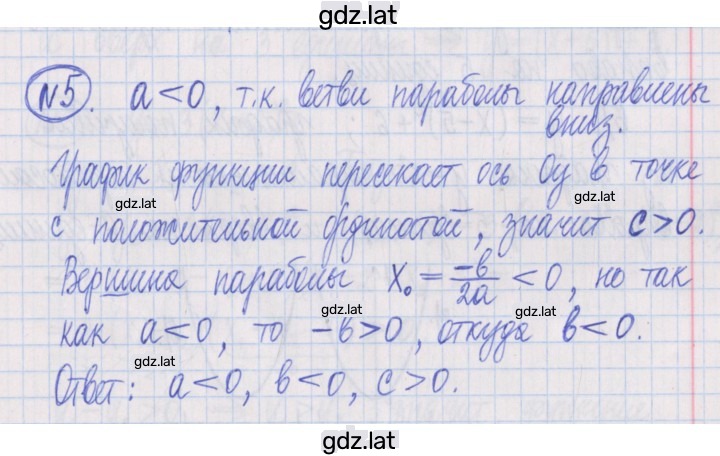 gdz.lat
№5. a<0, т.к. ветви параболы направлены
вниз.
График функции пересекает ось Oy в точке
gdz.lat
gdz.lat
с положительной ординатой, значит c>0.
Вершина параболы x₀ = -b/2a < 0, но так
gdz.lat
gdz.lat
как a<0, то -b>0, откуда b<0.
gdz.lat
Ответ: a<0, b<0, c>0.
gdz.lat